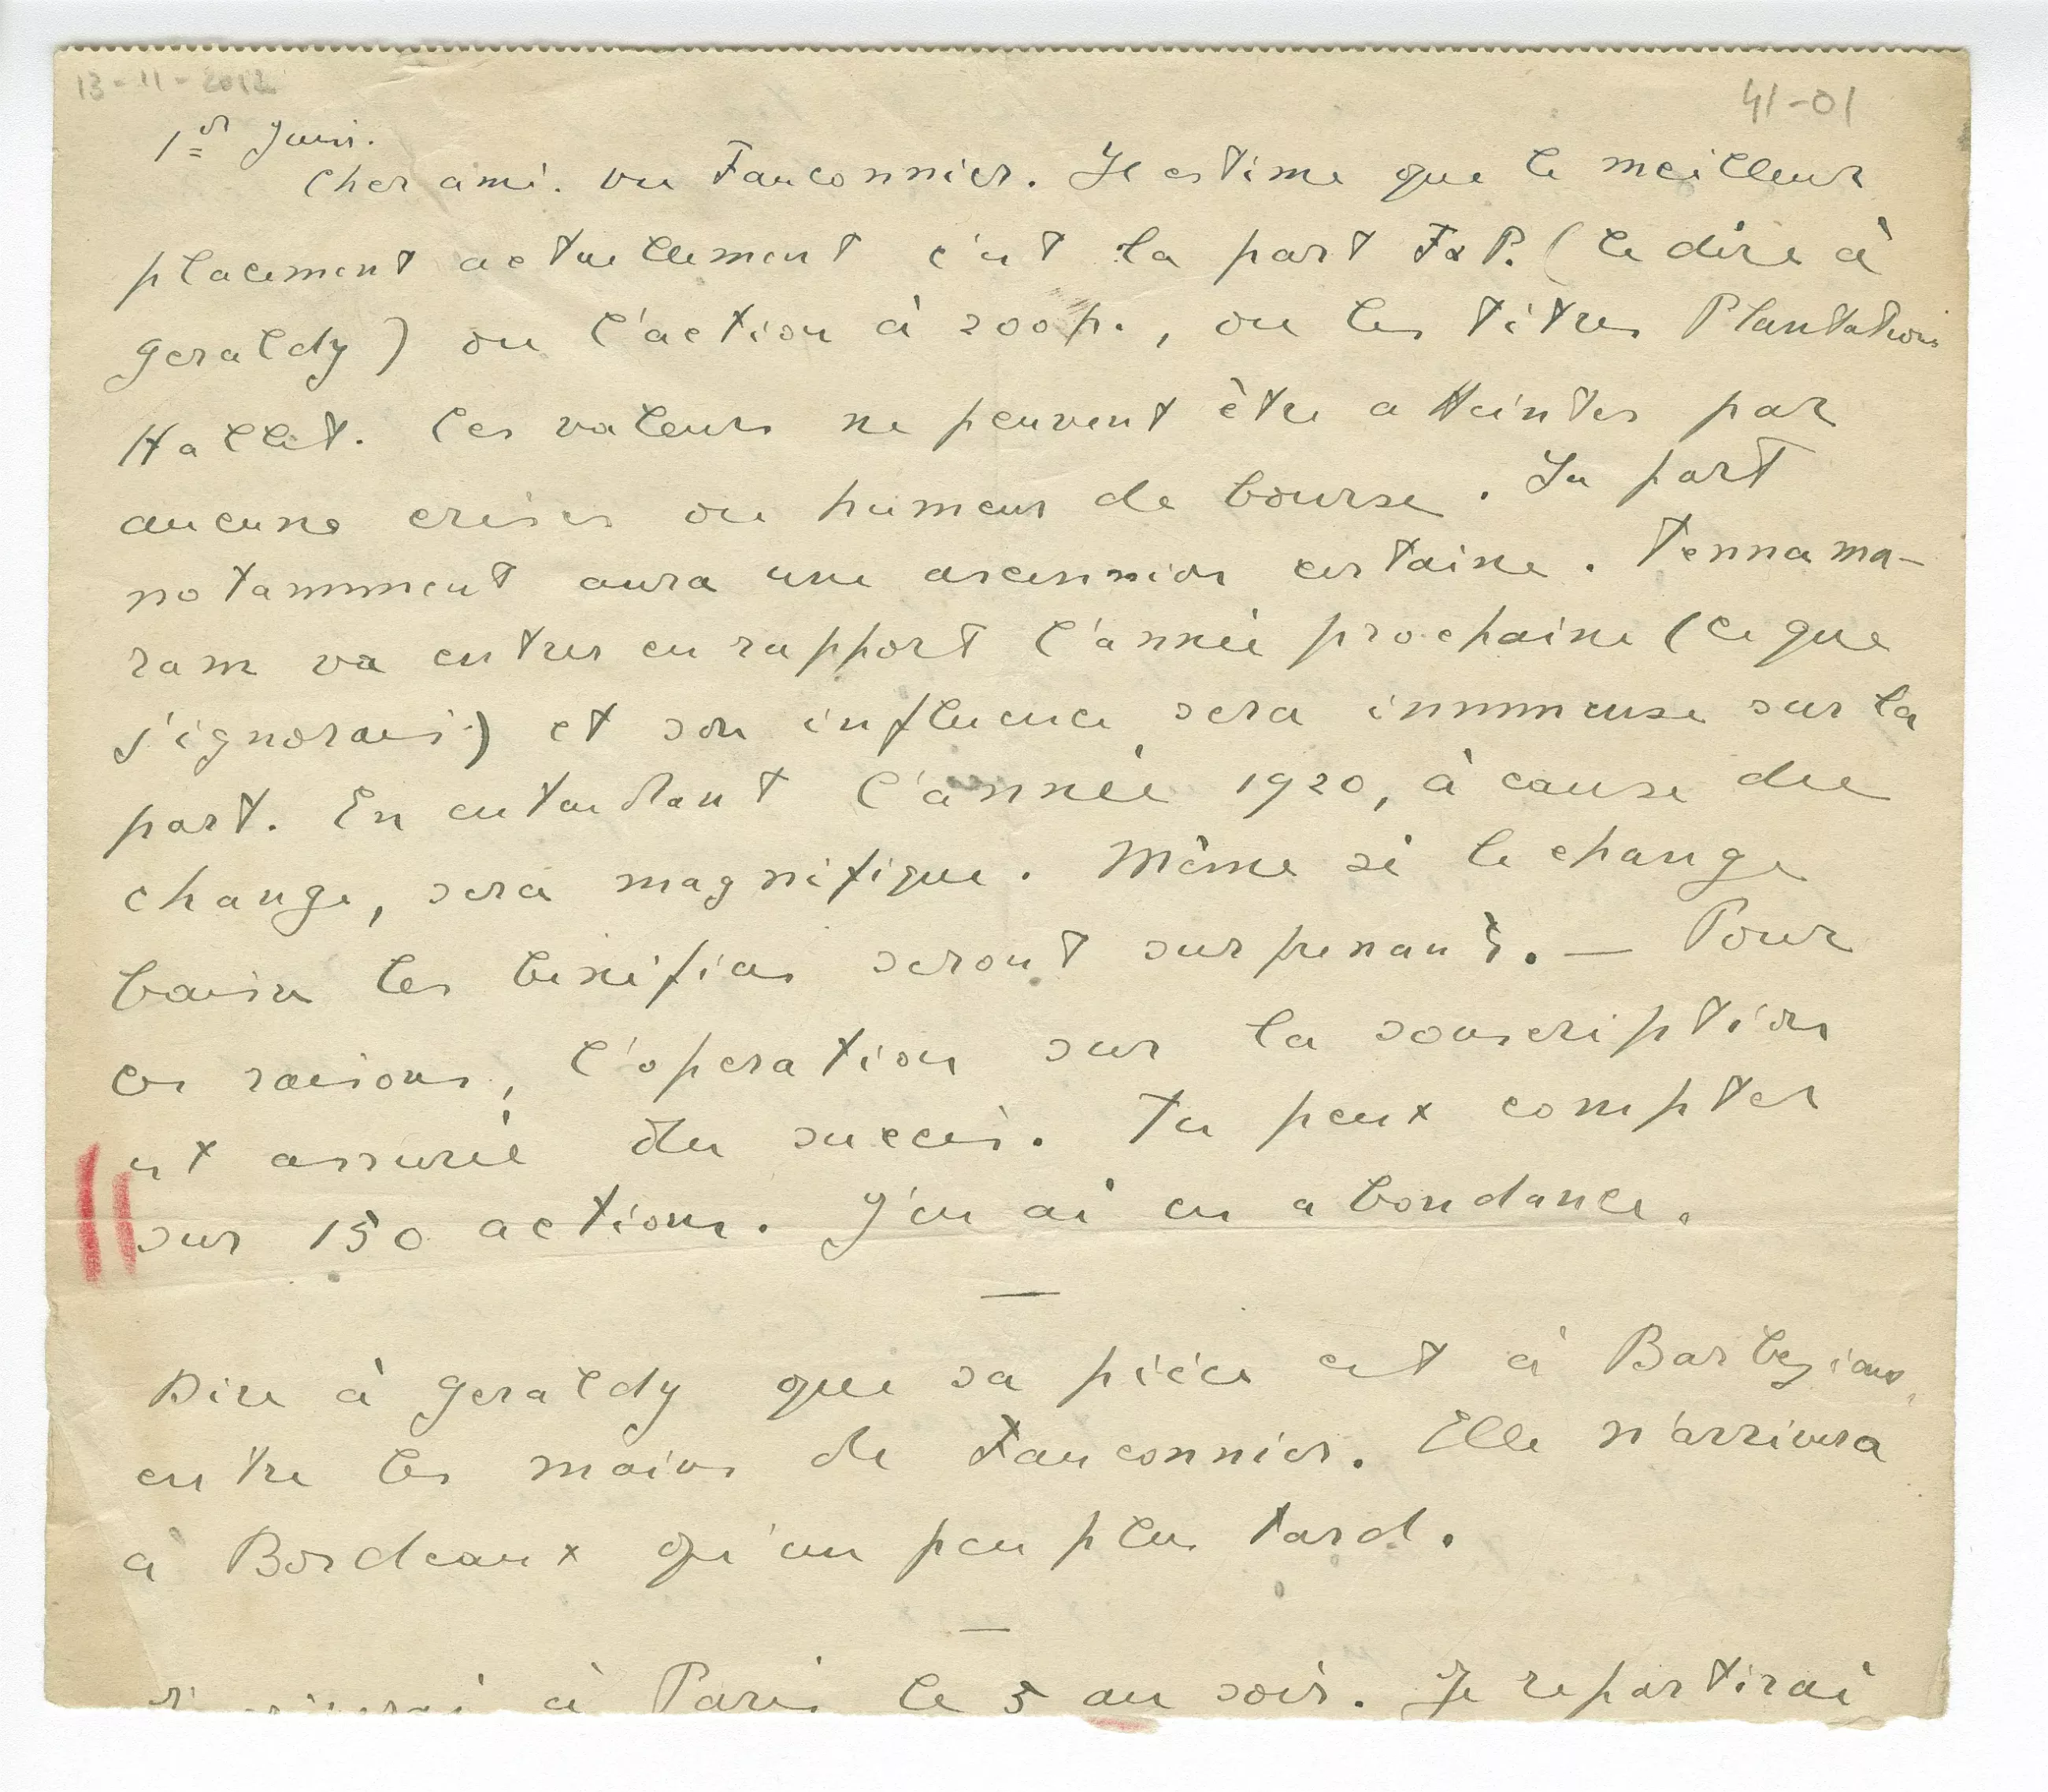 13-11-2012
41-01
1er Juin.
Cher ami. Vu Fauconnier. Il estime que le meilleur
placement actuellement c'est la part F&P. (le dire à
Geraldy) ou l'action à 200 p., ou les titres Plantations
Hallet. Ces valeurs ne peuvent être atteintes par
aucune crises ou humeur de bourse. La part
notamment aura une ascension certaine. Tennama-
ram va entrer en rapport l'année prochaine (ce que
j'ignorais) et son influence sera immense sur la
part. En attendant l'année 1920, à cause du
change, sera magnifique. Même si le change
baisse les bénéfices seront surprenants. — Pour
ces raisons, l'operation sur la souscription
est assurée du succès. Tu peux compter
sur 150 actions. J'en ai en abondance.
Dire à Geraldy que sa pièce est à Barbezieux,
entre les mains de Fauconnier. Elle n'arrivera
à Bordeaux qu'un peu plus tard.
à Paris le 5 au soir. Je repartirai